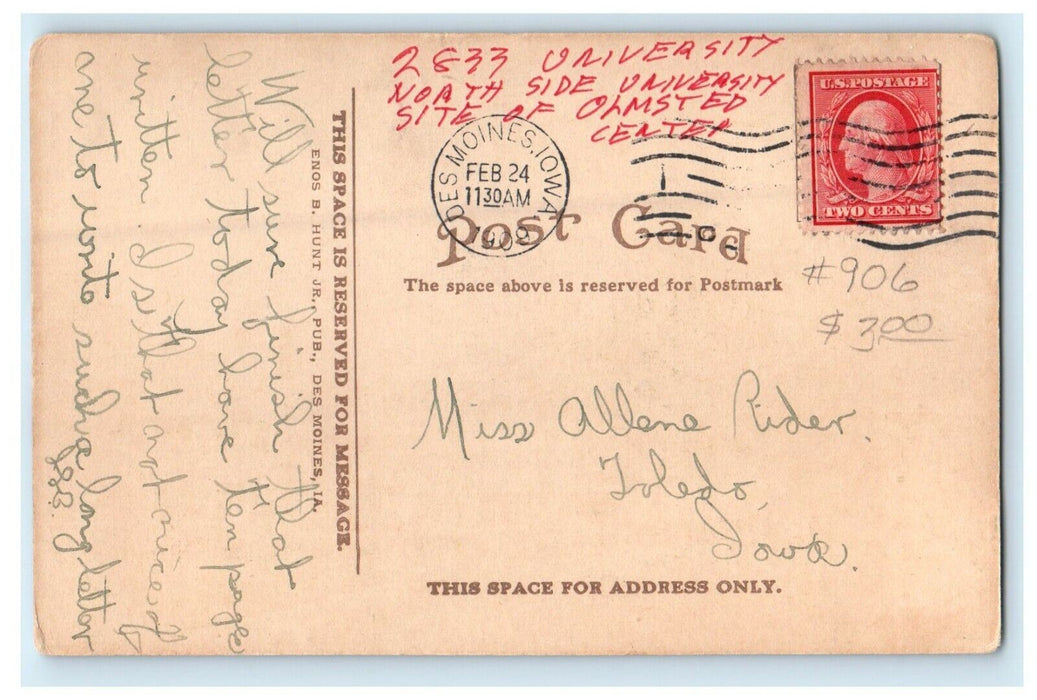 2833 UNIVERSITY
NORTH SIDE UNIVERSITY
SITE OF OLMSTED
CENTER
U.S. POSTAGE
TWO CENTS
DES MOINES, IOWA
FEB 24
1130 AM
1909
Post Card
The space above is reserved for Postmark
#906
$3.00
THIS SPACE IS RESERVED FOR MESSAGE.
ENOS B. HUNT JR., PUB., DES MOINES, IA.
Will sure finish that
letter today have ten pages
written. Isn't that not nice of
one to write such a long letter
Miss Allene Rider.
Toledo,
Iowa.
THIS SPACE FOR ADDRESS ONLY.